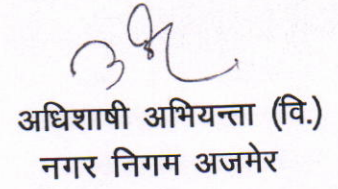 अधिशाषी अभियन्ता (वि.)
नगर निगम अजमेर